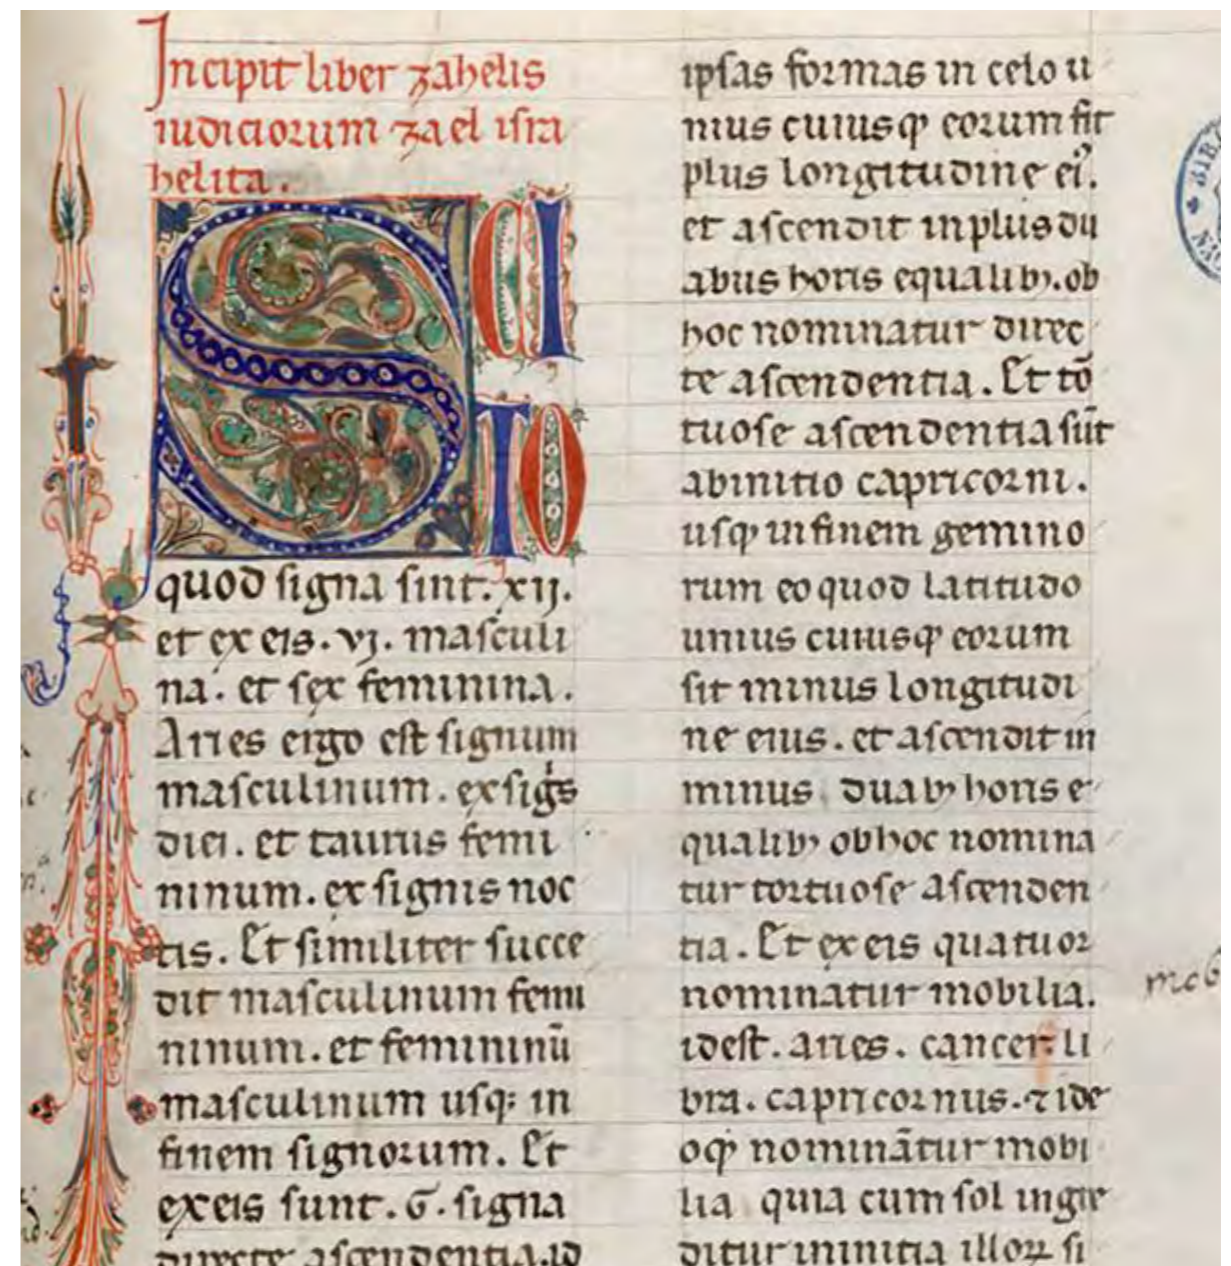 Incipit liber zahelis
iudiciorum zael isra
helita.
SCI
TO
quod signa sint. xij.
et ex eis. vj. masculi
na. et sex feminina.
Aries ergo est signum
masculinum. ex sig̅s
diei. et taurus femi
ninum. ex signis noc
tis. Et similiter succe
dit masculinum femi
ninum. et femininū
masculinum usq; in
finem signorum. Et
ex eis sunt. G. signa
directe ascendentia. id
ipsas formas in celo u
nius cuiusqꝫ eorum fit
plus longitudine ei᾿.
et ascendit in plus du
abus horis equalibꝫ. ob
hoc nominatur direc
te ascendentia. Et tō
tuose ascendentia sūt
ab initio capricorni.
usqꝫ in finem gemino
rum eo quod latitudo
unius cuiusqꝫ eorum
sit minus longitudi
ne eius. et ascendit in
minus duabꝫ horis e
qualibꝫ ob hoc nomina
tur tortuose ascenden
tia. Et ex eis quatuor
nominatur mobilia.
idest. aries. cancer. li
bra. capricornus. ⁊ ide
oqꝫ nominātur mobi
lia quia cum sol ingre
ditur in initia illoꝝ si